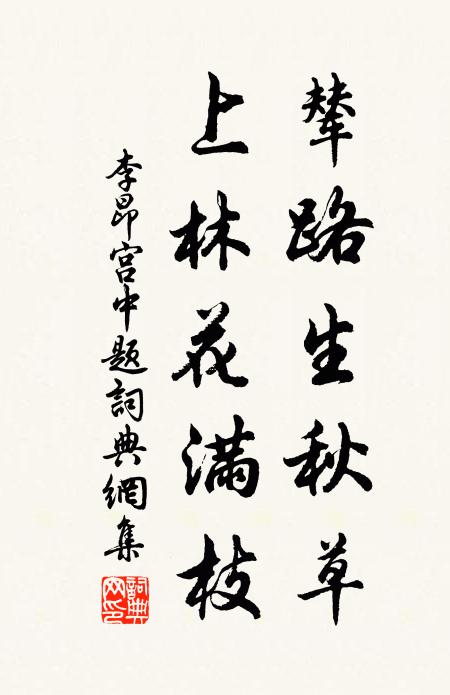 輦路生秋草
上林花滿枝
李昂宮中題詞典網集
詞典網印